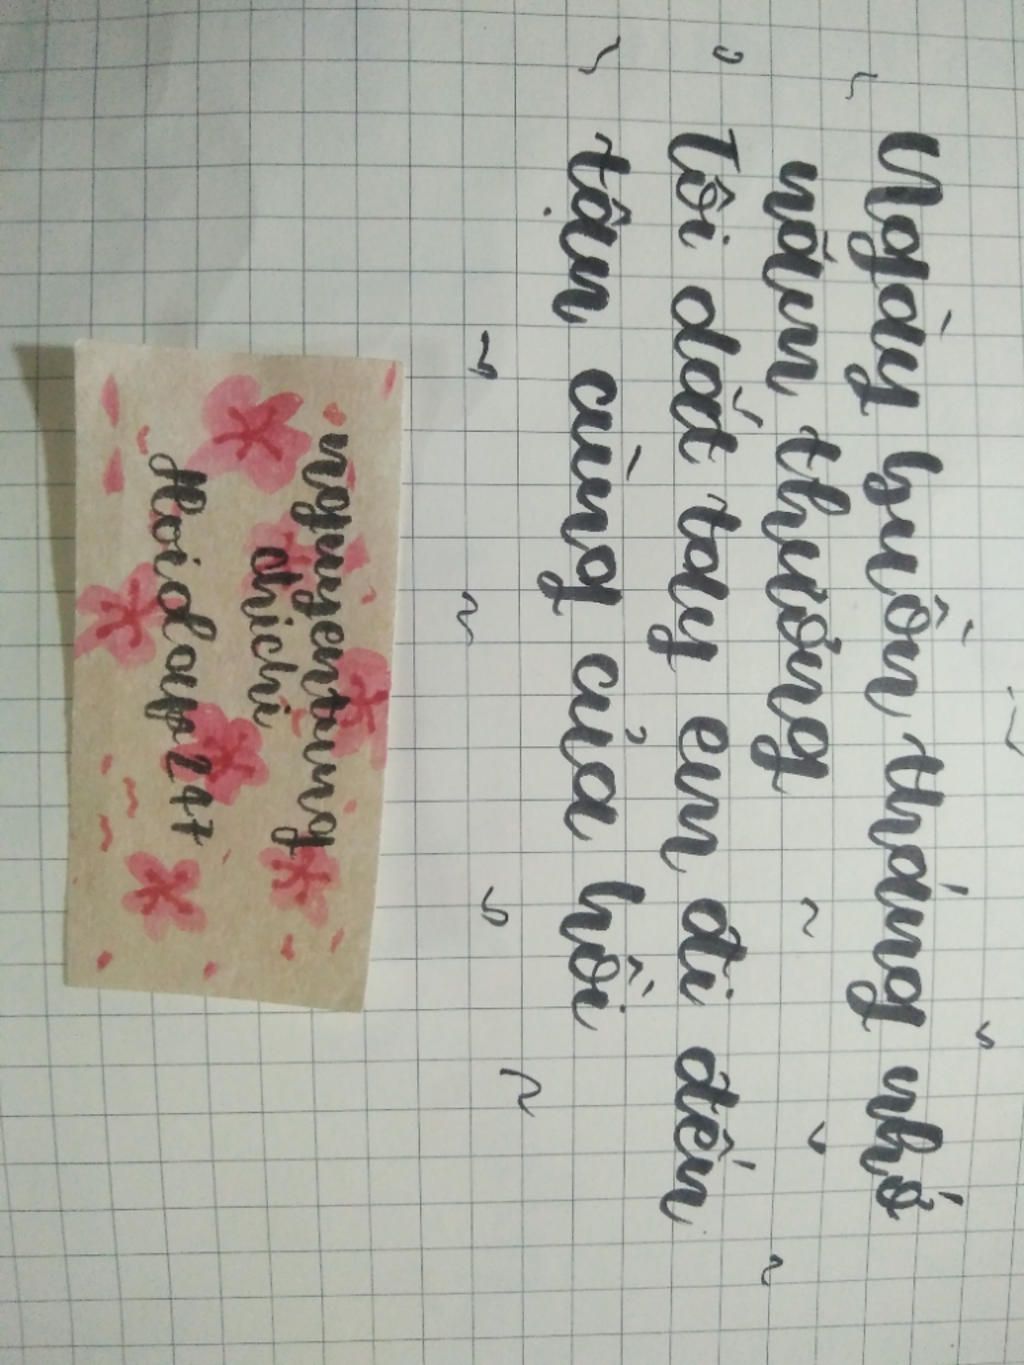 Ngày buồn tháng nhớ
năm thương
Tôi dắt tay em đi đến
tận cùng của hồi
nguyentung
chichi
Hoidap247